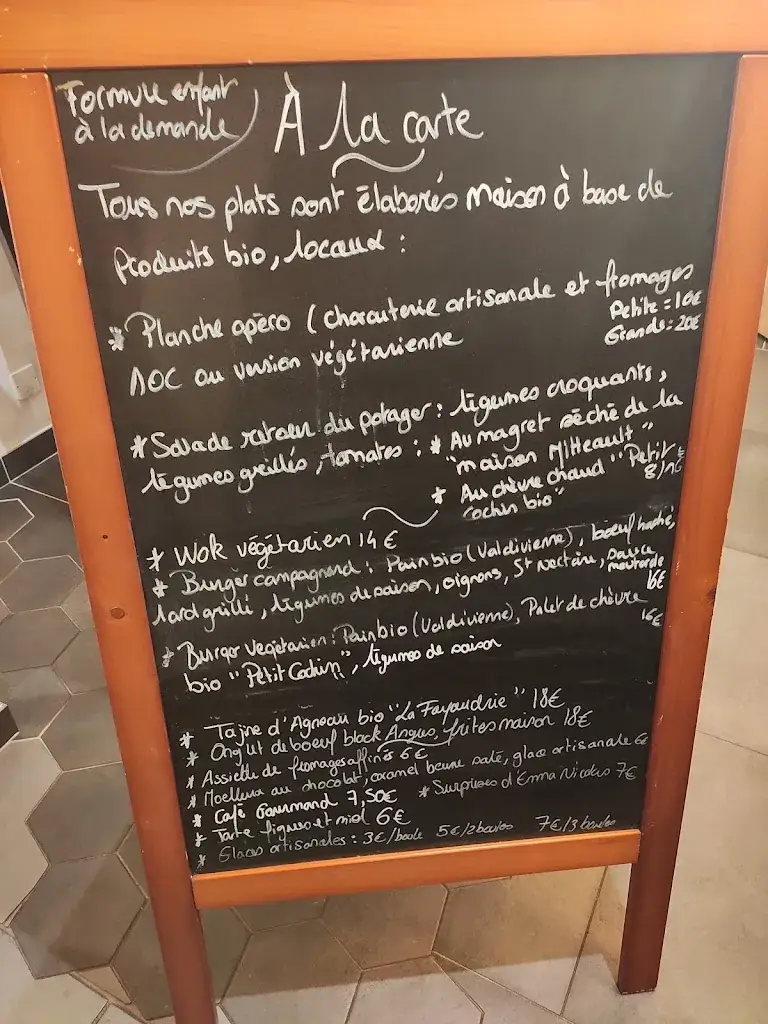 Formule enfant
à la demande
À la carte
Tous nos plats sont élaborés maison à base de
Produits bio, locaux :
* Planche apéro (charcuterie artisanale et fromages
AOC ou version végétarienne
Petite = 10€
Grande: 20€
* Salade retour du potager : légumes croquants,
légumes grillés, tomates : * Au magret séché de la
"maison Mitteault"
* Au chèvre chaud "Petit
cochin bio"
* Wok végétarien 14€
* Burger campagnard : Pain bio (Valdivienne), boeuf haché,
lard grillé, légumes de saison, oignons, St nectaire, sauce
moutarde
16€
* Burger végétarien : Pain bio (Valdivienne), Palet de chèvre
bio "Petit Cochin", légumes de saison
16€
* Tajne d'Agneau bio "La Fayaudrie" 18€
* Onglet de boeuf black Angus, frites maison 18€
* Assiette de fromages affinés 6€
* Moelleux au chocolat, caramel beurre salé, glace artisanale 6€
* Café Gourmand 7,50€ * Surprises d'Emma Nicolas 7€
* Tarte figues et miel 6€
* Glaces artisanales : 3€/boule 5€/2boules 7€/3boules